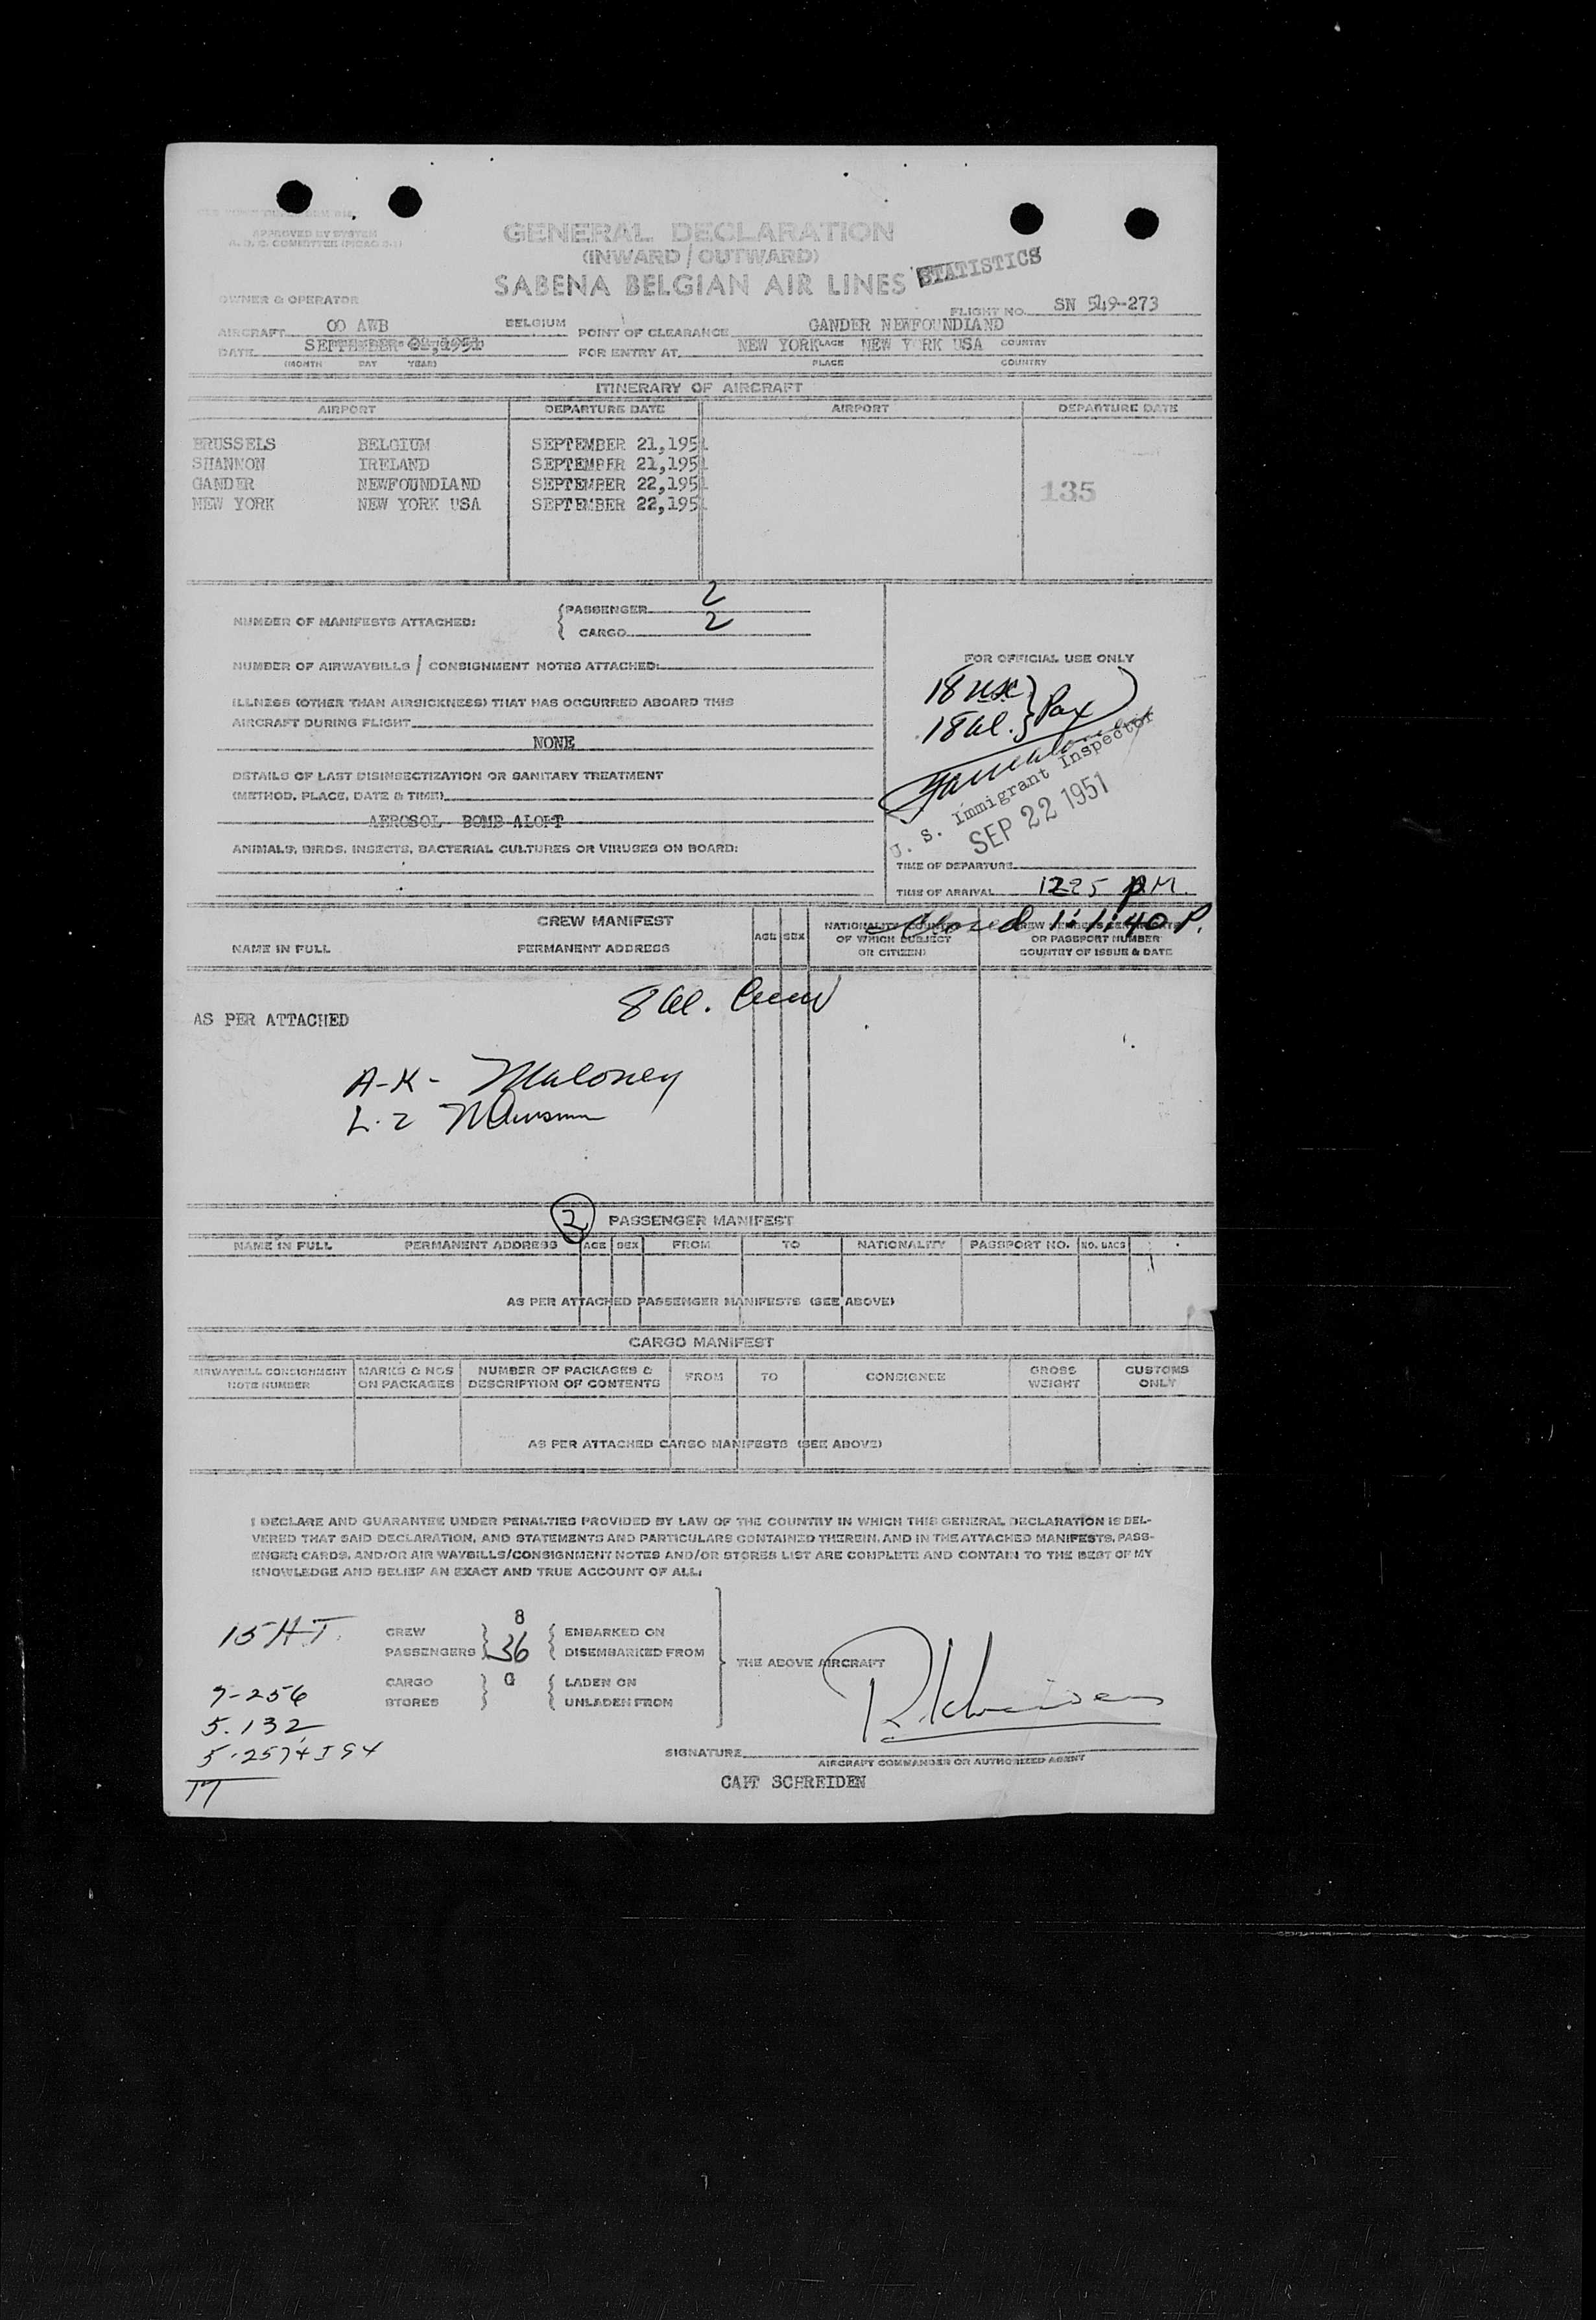 APPROVED BY SYSTEM
GENERAL DECLARATION
(INWARD / OUTWARD)
SABENA BELGIAN AIR LINES
STATISTICS
OWNER & OPERATOR
FLIGHT NO. SN 549-273
AIRCRAFT OO AWB BELGIUM POINT OF CLEARANCE GANDER NEWFOUNDLAND
PLACE COUNTRY
DATE SEPTEMBER 1951 FOR ENTRY AT NEW YORK NEW YORK USA
(MONTH DAY YEAR) PLACE COUNTRY
ITINERARY OF AIRCRAFT
AIRPORT DEPARTURE DATE AIRPORT DEPARTURE DATE
BRUSSELS BELGIUM SEPTEMBER 21,1951
SHANNON IRELAND SEPTEMBER 21,1951
GANDER NEWFOUNDLAND SEPTEMBER 22,1951
NEW YORK NEW YORK USA SEPTEMBER 22,1951
135
NUMBER OF MANIFESTS ATTACHED: PASSENGER 2
CARGO 2
NUMBER OF AIRWAYBILLS / CONSIGNMENT NOTES ATTACHED:
ILLNESS (OTHER THAN AIRSICKNESS) THAT HAS OCCURRED ABOARD THIS
AIRCRAFT DURING FLIGHT
NONE
DETAILS OF LAST DISINSECTIZATION OR SANITARY TREATMENT
(METHOD, PLACE, DATE & TIME)
AEROSOL BOMB ALOFT
ANIMALS, BIRDS, INSECTS, BACTERIAL CULTURES OR VIRUSES ON BOARD:
FOR OFFICIAL USE ONLY
18 USC
18 al. Pax
U. S. Immigrant Inspector
SEP 22 1951
TIME OF DEPARTURE
TIME OF ARRIVAL 1225 PM.
Closed 1:40 P.
CREW MANIFEST
NAME IN FULL PERMANENT ADDRESS AGE SEX NATIONALITY (COUNTRY OF WHICH SUBJECT OR CITIZEN) CREW MEMBERS CERTIFICATE OR PASSPORT NUMBER COUNTRY OF ISSUE & DATE
8 al. Crew
AS PER ATTACHED
A-K- Maloney
L-Z
2 PASSENGER MANIFEST
NAME IN FULL PERMANENT ADDRESS AGE SEX FROM TO NATIONALITY PASSPORT NO. NO. BAGS
AS PER ATTACHED PASSENGER MANIFESTS (SEE ABOVE)
CARGO MANIFEST
AIRWAYBILL CONSIGNMENT NOTE NUMBER MARKS & NOS ON PACKAGES NUMBER OF PACKAGES & DESCRIPTION OF CONTENTS FROM TO CONSIGNEE GROSS WEIGHT CUSTOMS ONLY
AS PER ATTACHED CARGO MANIFESTS (SEE ABOVE)
I DECLARE AND GUARANTEE UNDER PENALTIES PROVIDED BY LAW OF THE COUNTRY IN WHICH THIS GENERAL DECLARATION IS DEL-
VERED THAT SAID DECLARATION, AND STATEMENTS AND PARTICULARS CONTAINED THEREIN, AND IN THE ATTACHED MANIFESTS, PASS-
ENGER CARDS, AND/OR AIR WAYBILLS/CONSIGNMENT NOTES AND/OR STORES LIST ARE COMPLETE AND CONTAIN TO THE BEST OF MY
KNOWLEDGE AND BELIEF AN EXACT AND TRUE ACCOUNT OF ALL:
15 HT.
CREW 8 EMBARKED ON
PASSENGERS 36 DISEMBARKED FROM
THE ABOVE AIRCRAFT
CARGO G LADEN ON
STORES UNLADEN FROM
7-256
5.132
SIGNATURE
AIRCRAFT COMMANDER OR AUTHORIZED AGENT
CAPT SCHREIDEN